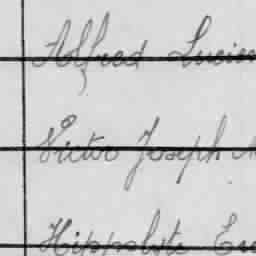 Alfred Lucien
Victor Joseph
Hippolyte